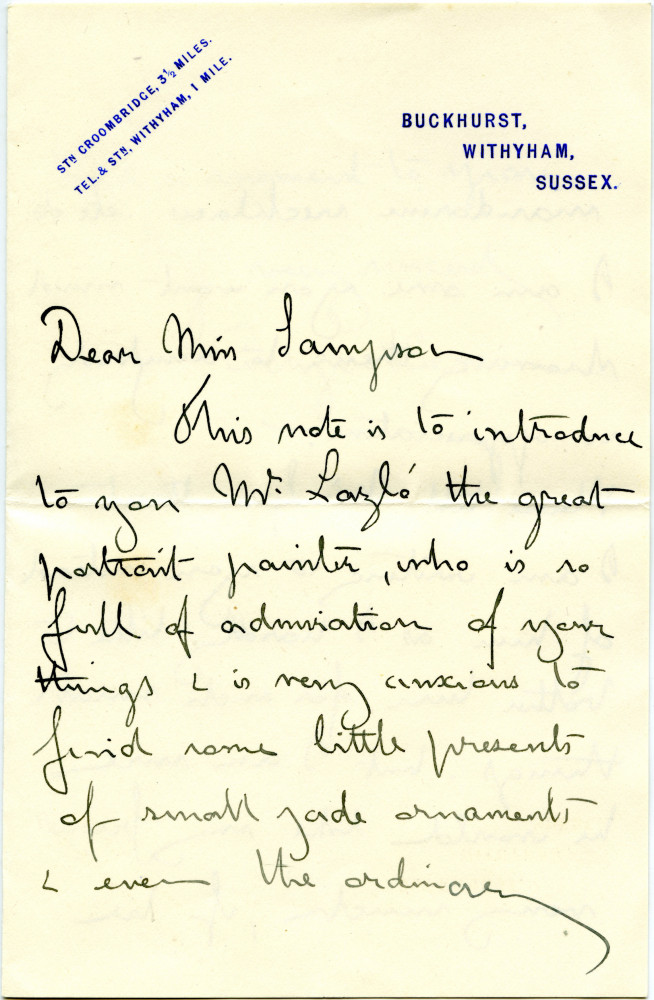 STN GROOMBRIDGE, 3½ MILES.
TEL. & STN. WITHYHAM, 1 MILE.
BUCKHURST,
WITHYHAM,
SUSSEX.
Dear Miss Sampson
This note is to introduce
to you Mr. Lazló the great
portrait painter, who is so
full of admiration of your
things & is very anxious to
find some little presents
of small jade ornaments
& even the ordinary